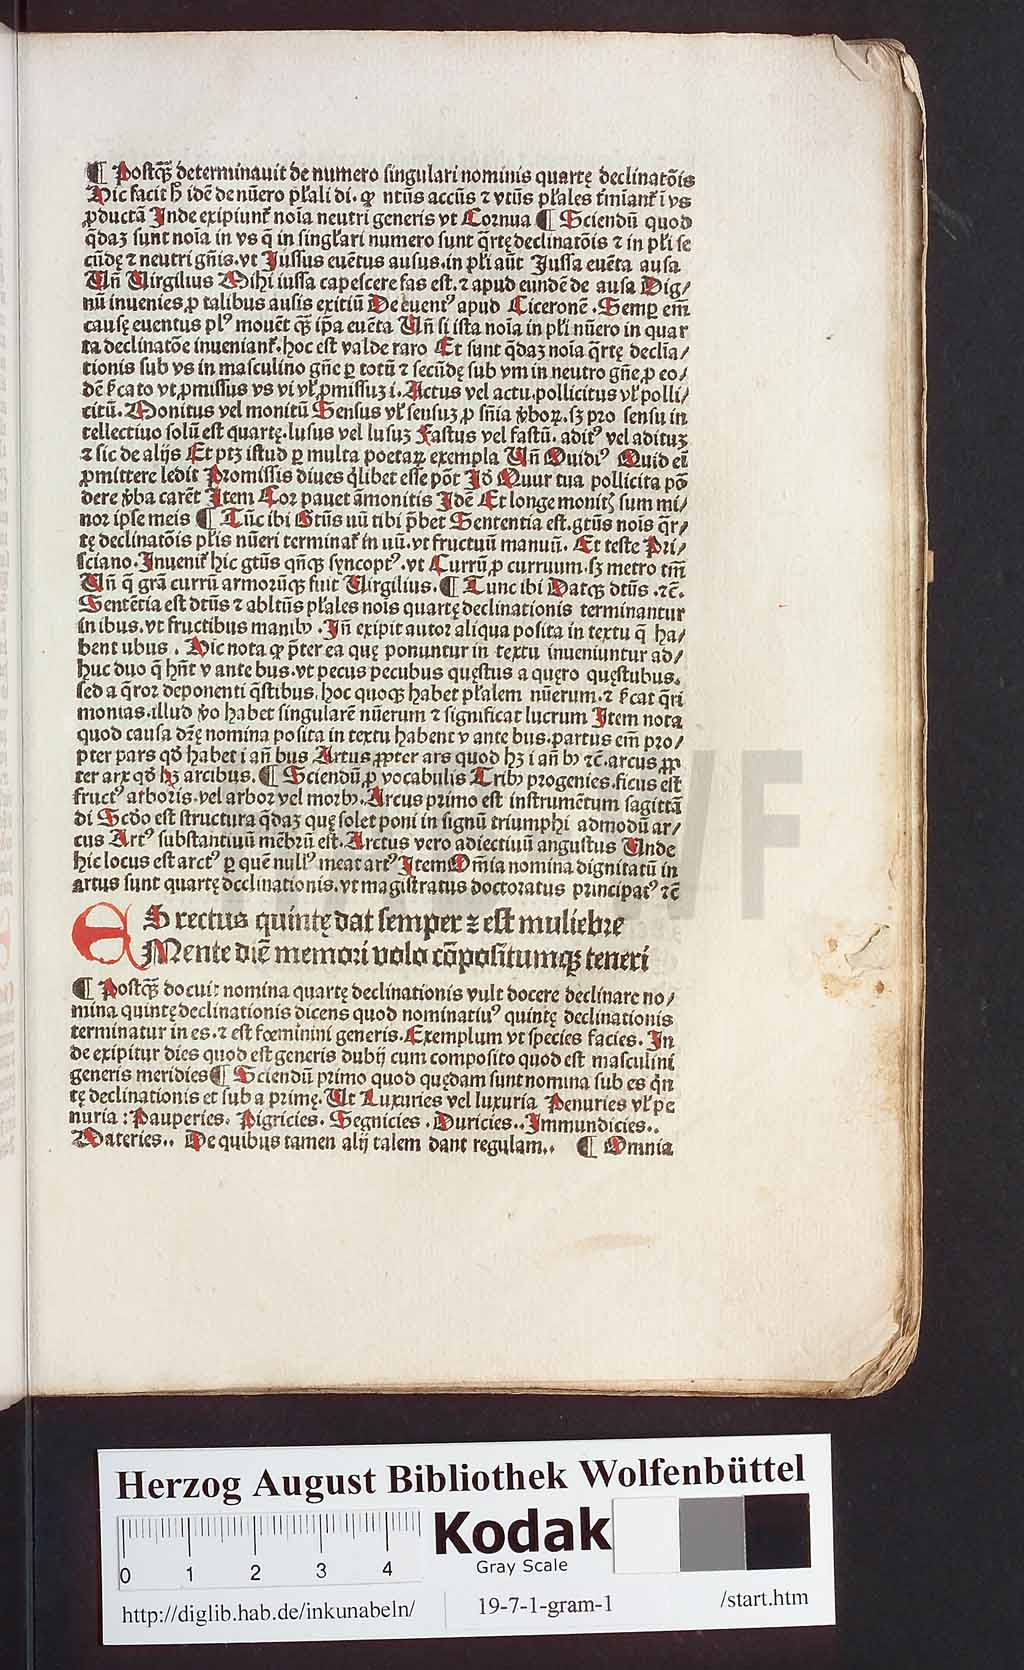 ¶ Postqꝫ determinauit de numero singulari nominis quartę declinatōis
Hic facit hͦ idē de nūero pl̄ali di. ꝙ ntūs accūs ⁊ vtūs pl̄ales t̄miant̄ ī vs
ꝓductā Inde exipiunt̄ noīa neutri generis vt Cornua ¶ Sciendū quod
q̄daꝫ sunt noīa in vs q̄ in singl̄ari numero sunt q̄rtę declinatōis ⁊ in pl̄i se
cūdę ⁊ neutri gn̄is. vt Jussus euētus ausus. in pl̄i aūt Jussa euēta ausa
Un̄ Uirgilius Mihi iussa capescere fas est. ⁊ apud eundē de ausa Dig/
nū inuenies ꝓ talibus ausis exitiū De euentꝰ apud Ciceronē. Semꝑ em̄
causę euentus plꝰ mouēt qꝫ ip̄a euēta Un̄ si ista noīa in pl̄i nūero in quar
ta declinatōe inueniant̄. hoc est valde raro Et sunt q̄daꝫ noīa q̄rtę declīa/
tionis sub vs in masculino gn̄e ꝑ totū ⁊ secūdę sub vm in neutro gn̄e ꝓ eo/
dē s̄cato vt ꝓmissus vs vi vl̄ ꝓmissuꝫ i. Actus vel actu. pollicitus vl̄ polli/
citū. Monitus vel monitū Sensus vl̄ sensuꝫ ꝓ sn̄ia v̄boꝝ. sꝫ pro sensu in
tellectiuo solū est quartę. lusus vel lusuꝫ Fastus vel fastū. aditꝰ vel adituꝫ
⁊ sic de alijs Et ptꝫ istud ꝑ multa poetaꝝ exempla Un̄ Ouidiꝰ Quid ei̅
ꝓmittere ledit Promissis diues q̄libet esse pōt Jdō Quur tua pollicita pō
dere v̄ba carēt Item Cor pauet āmonitis Idē Et longe monitꝭ sum mi/
nor ipse meis ¶ Tūc ibi Gtūs uū tibi p̄bet Sententia est. gtūs nois q̄r/
tę declinatōis pl̄is nūeri terminat̄ in uū. vt fructuū manuū. Et teste Pri/
sciano. Inuenit̄ hic gtūs qn̄qꝫ syncoptꝰ. vt Currū ꝓ curruum. sꝫ metro tm̄
Un̄ q̄ gr̄a currū armorūqꝫ fuit Uirgilius. ¶ Tunc ibi Datqꝫ dtūs .⁊c̄.
Sentētia est dtūs ⁊ abltūs pl̄ales nois quartę declinationis terminantur
in ibus. vt fructibus manibꝰ. Jn̄ exipit autor aliqua posita in textu q̄ ha/
bent ubus. Hic nota ꝙ p̄ter ea quę ponuntur in textu inueniuntur ad/
huc duo q̄ hn̄t v ante bus. vt pecus pecubus quęstus a quęro quęstubus.
sed a q̄ror deponenti q̄stibus. hoc quoqꝫ habet pl̄alem nūerum. ⁊ s̄cat q̄ri
monias. illud v̄o habet singularē nūerum ⁊ significat lucrum Item nota
quod causa dr̄ę nomina posita in textu habent v ante bus. partus em̄ pro/
pter pars qd̄ habet i an̄ bus Artus ꝓpter ars quod hꝫ i an̄ bꝰ ⁊c̄. arcus ꝓp
ter arx qd̄ hꝫ arcibus. ¶ Sciendū ꝓ vocabulis Tribꝰ progenies. ficus est
fructꝰ arboris. vel arbor vel morbꝰ. Arcus primo est instrumētum sagittā
di Scd̄o est structura q̄daꝫ quę solet poni in signū triumphi admodū ar/
cus Artꝰ substantiuū mēbrū est. Arctus vero adiectiuū angustus Unde
hic locus est arctꝰ ꝑ quē nullꝰ meat artꝰ Item Om̄ia nomina dignitatū in
artus sunt quartę declinationis. vt magistratus doctoratus principatꝰ ⁊c̄
ES rectus quintę dat semper ⁊ est muliebre
Mente diē memori volo cōpositumqꝫ teneri
¶ Postqꝫ docuit nomina quartę declinationis vult docere declinare no/
mina quintę declinationis dicens quod nominatiuꝰ quintę declinationis
terminatur in es. ⁊ est fœminini generis. Exemplum vt species facies. In
de exipitur dies quod est generis dubij cum composito quod est masculini
generis meridies ¶ Sciendū primo quod quędam sunt nomina sub es q̄n
tę declinationis et sub a primę. Ut Luxuries vel luxuria Penuries vl̄ pe
nuria : Pauperies. Pigricies. Segnicies. Duricies.. Immundicies..
Materies.. De quibus tamen alij talem dant regulam.. ¶ Omnia
HAB WF
Herzog August Bibliothek Wolfenbüttel
Kodak
Gray Scale
0 1 2 3 4
http://diglib.hab.de/inkunabeln/ 19-7-1-gram-1 /start.htm